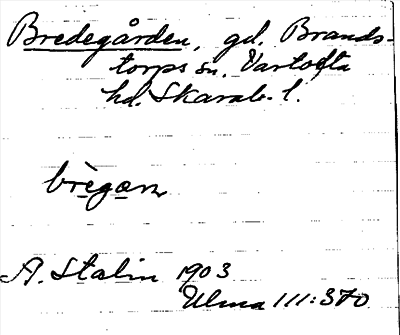 Bredegården, gd. Brands-
torps sn. Vartofta
hd. Skarab. l.
brègæn
A. Stalin 1903
Ulma 111:370